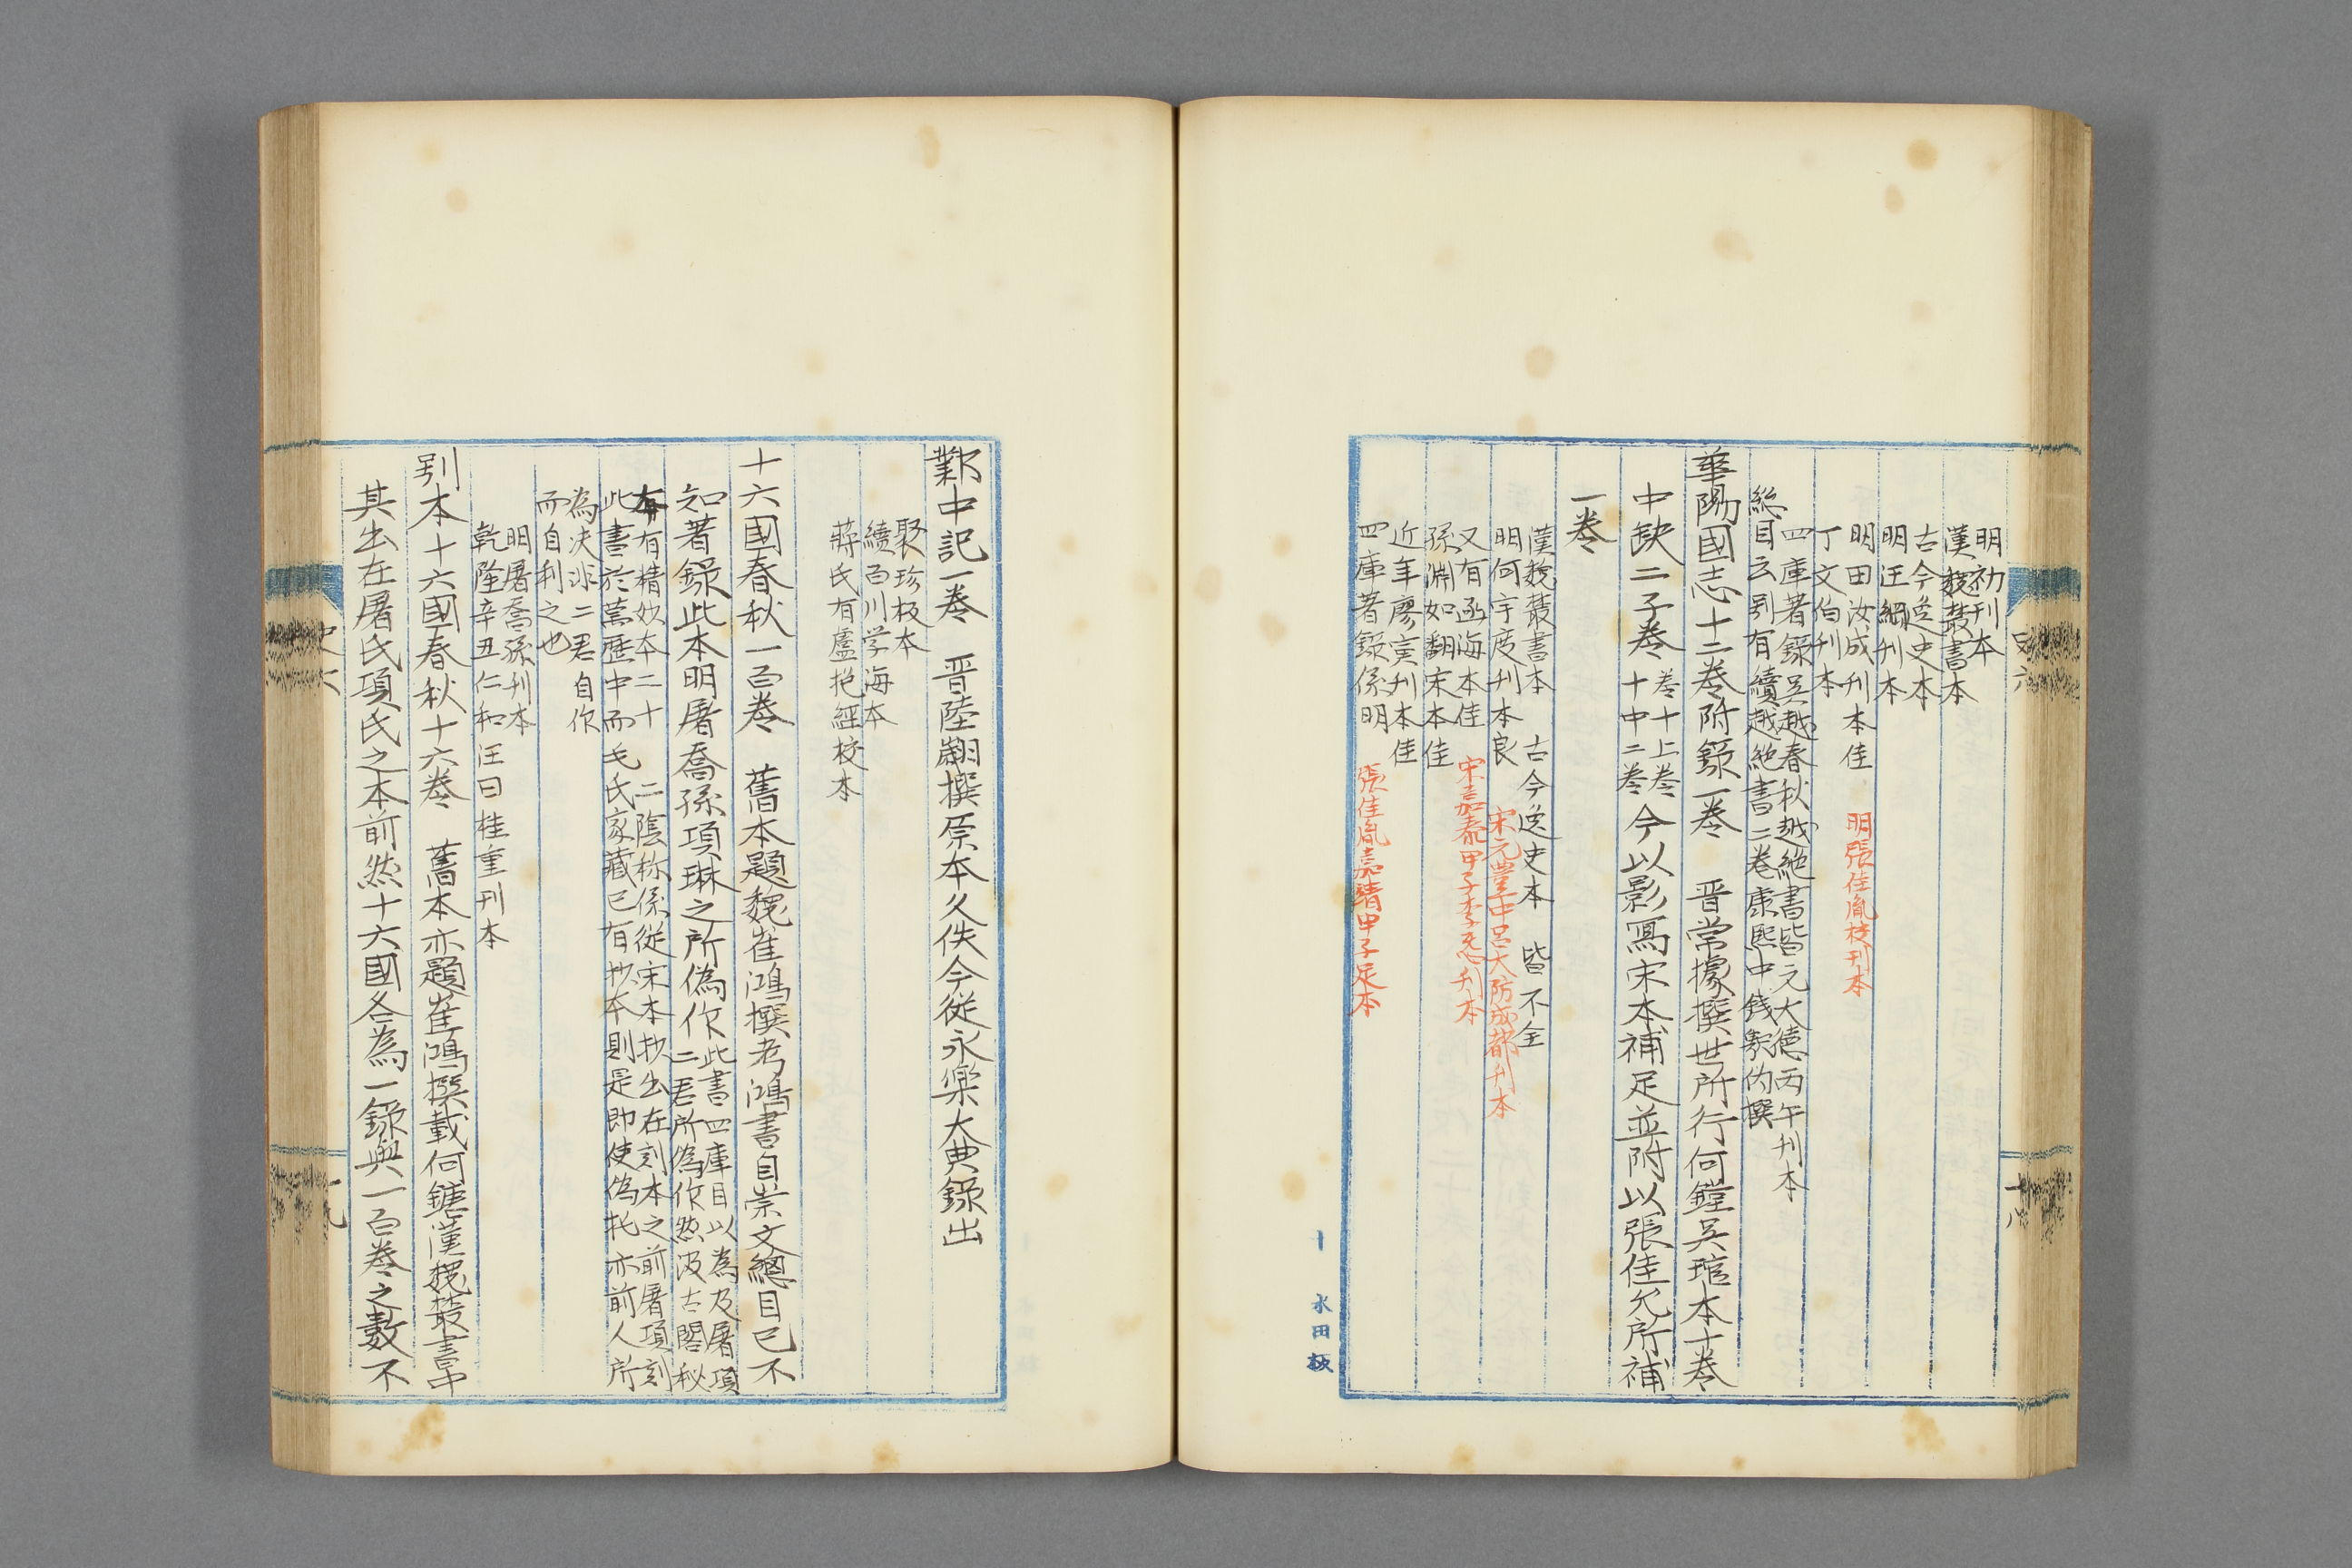 明初刊本
漢魏叢書本
古今逸史本
明汪綱刊本
明田汝成刊本佳
明張佳胤校刊本
丁文伯刊本
四庫著錄吳越春秋越絶書皆元大德丙午刊本
総目云別有續越絶書二卷康熙中錢䵻偽撰
華陽國志十二卷附錄一卷　晋常據撰世所行何鏜吳琯本十卷
中缺二子卷
卷十上卷
十中二卷
今以影寫宋本補足並附以張佳允所補
一卷
漢魏叢書本　古今逸史本　皆不全
明何宇度刊本良
宋元豊中呂大防成都刊本
又有函海本佳
宋嘉泰甲子李𡊮刋本
孫淵如翻宋本佳
近年廖寅刊本佳
四庫著錄係明
張佳胤嘉靖甲子足本
水田板
史六
十八
鄴中記一卷　晋陸翽撰原本久佚今從永樂大典錄出
聚珍板本
續百川学海本
蔣氏有盧抱經校本
十六國春秋一百卷　舊本題魏崔鴻撰考鴻書自崇文總目已不
知著錄此本明屠喬孫項琳之所偽作
此書四庫目以為及屠項
二君所偽作然汲古閣秘
本有精妙本二十　二陰称係從宋本抄出在刻本之前屠項刻
此書於萬歷中而毛氏家藏已有抄本則是即使偽托亦前人所
為决非二君自作
而自利之也
明屠喬孫刊本
乾隆辛丑仁和汪日桂重刊本
别本十六國春秋十六卷　舊本亦題崔鴻撰載何鏜漢魏叢書中
其出在屠氏項氏之本前然十六國各為一錄與一百卷之數不
史六
十九